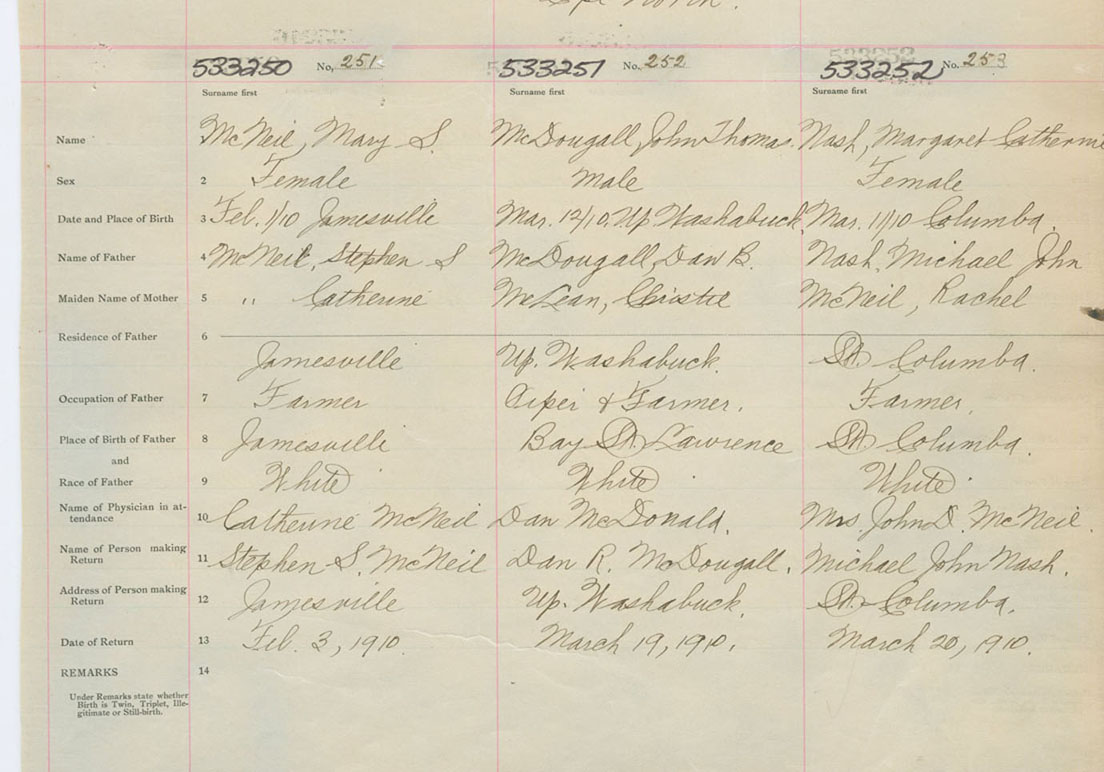 Cpe North.
533250 No. 251 533251 No. 252 533252 No. 253
Surname first Surname first Surname first
Name McNeil, Mary S. McDougall, John Thomas. Nash, Margaret Catherine
Sex 2 Female Male Female
Date and Place of Birth 3 Feb. 1/10 Jamesville Mar. 12/10. Up. Washabuck, Mar. 11/10 Columba.
Name of Father 4 McNeil, Stephen S McDougall, Dan B. Nash, Michael John
Maiden Name of Mother 5 " Catherine McLean, Christie McNeil, Rachel
Residence of Father 6
Jamesville Up. Washabuck. St. Columba.
Occupation of Father 7 Farmer Piper & Farmer. Farmer.
Place of Birth of Father 8 Jamesville Bay St. Lawrence St. Columba.
and
Race of Father 9 White White White
Name of Physician in at-
tendance 10 Catherine McNeil Dan McDonald. Mrs. John D. McNeil.
Name of Person making
Return 11 Stephen S. McNeil Dan R. McDougall. Michael John Nash.
Address of Person making
Return 12 Jamesville Up. Washabuck. St. Columba.
Date of Return 13 Feb. 3, 1910. March 19, 1910. March 20, 1910.
REMARKS 14
Under Remarks state whether
Birth is Twin, Triplet, Ille-
gitimate or Still-birth.